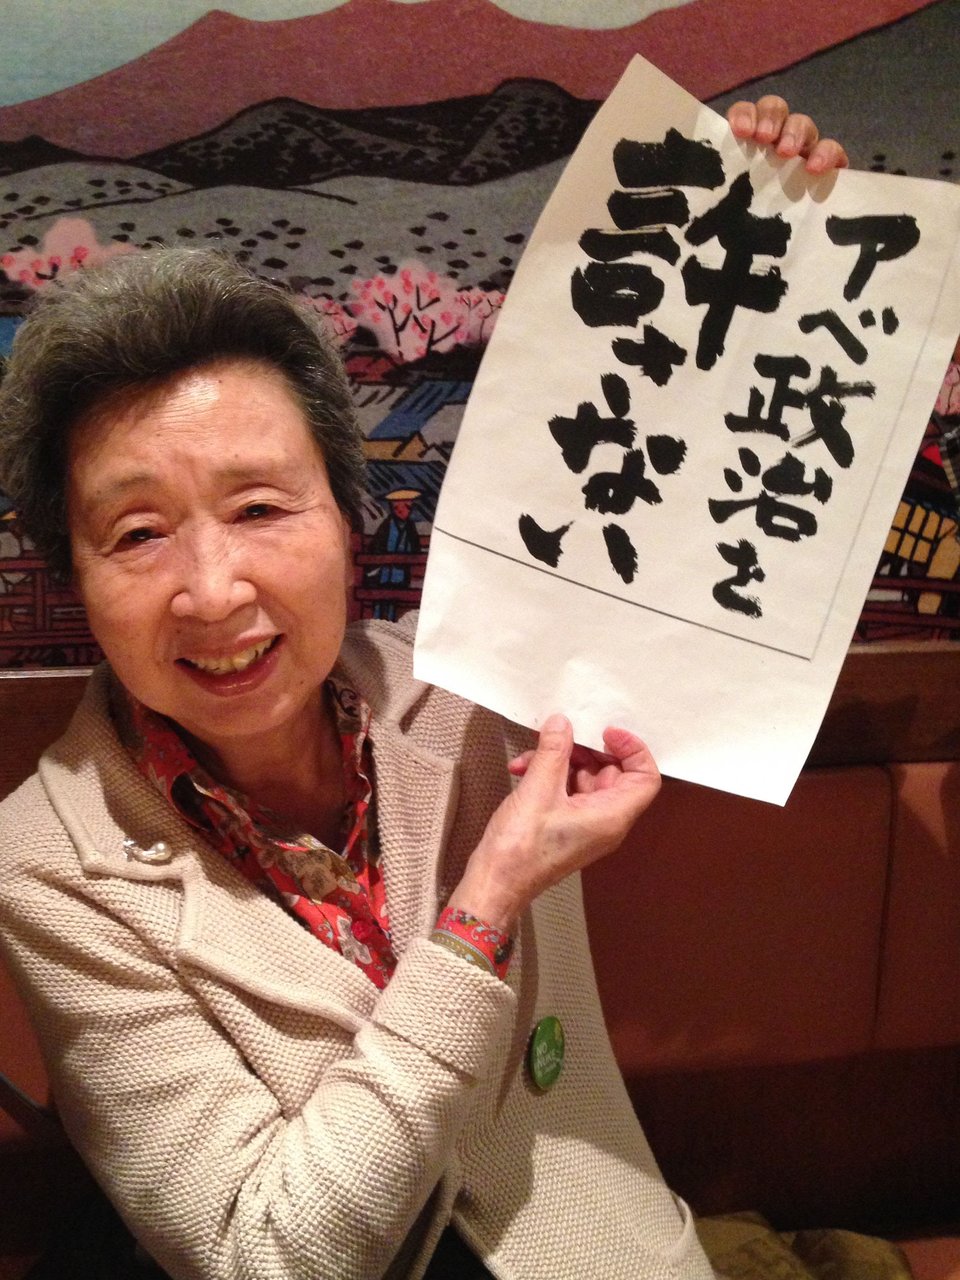 アベ政治を
許さない
NO